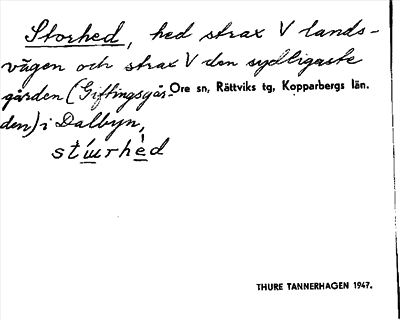 Storhed, hed strax V lands-
vägen och strax V den sydligaste
gården (Giftingsgår-
den) i Dalbyn,
Ore sn, Rättviks tg, Kopparbergs län.
stɯrhèd
THURE TANNERHAGEN 1947.